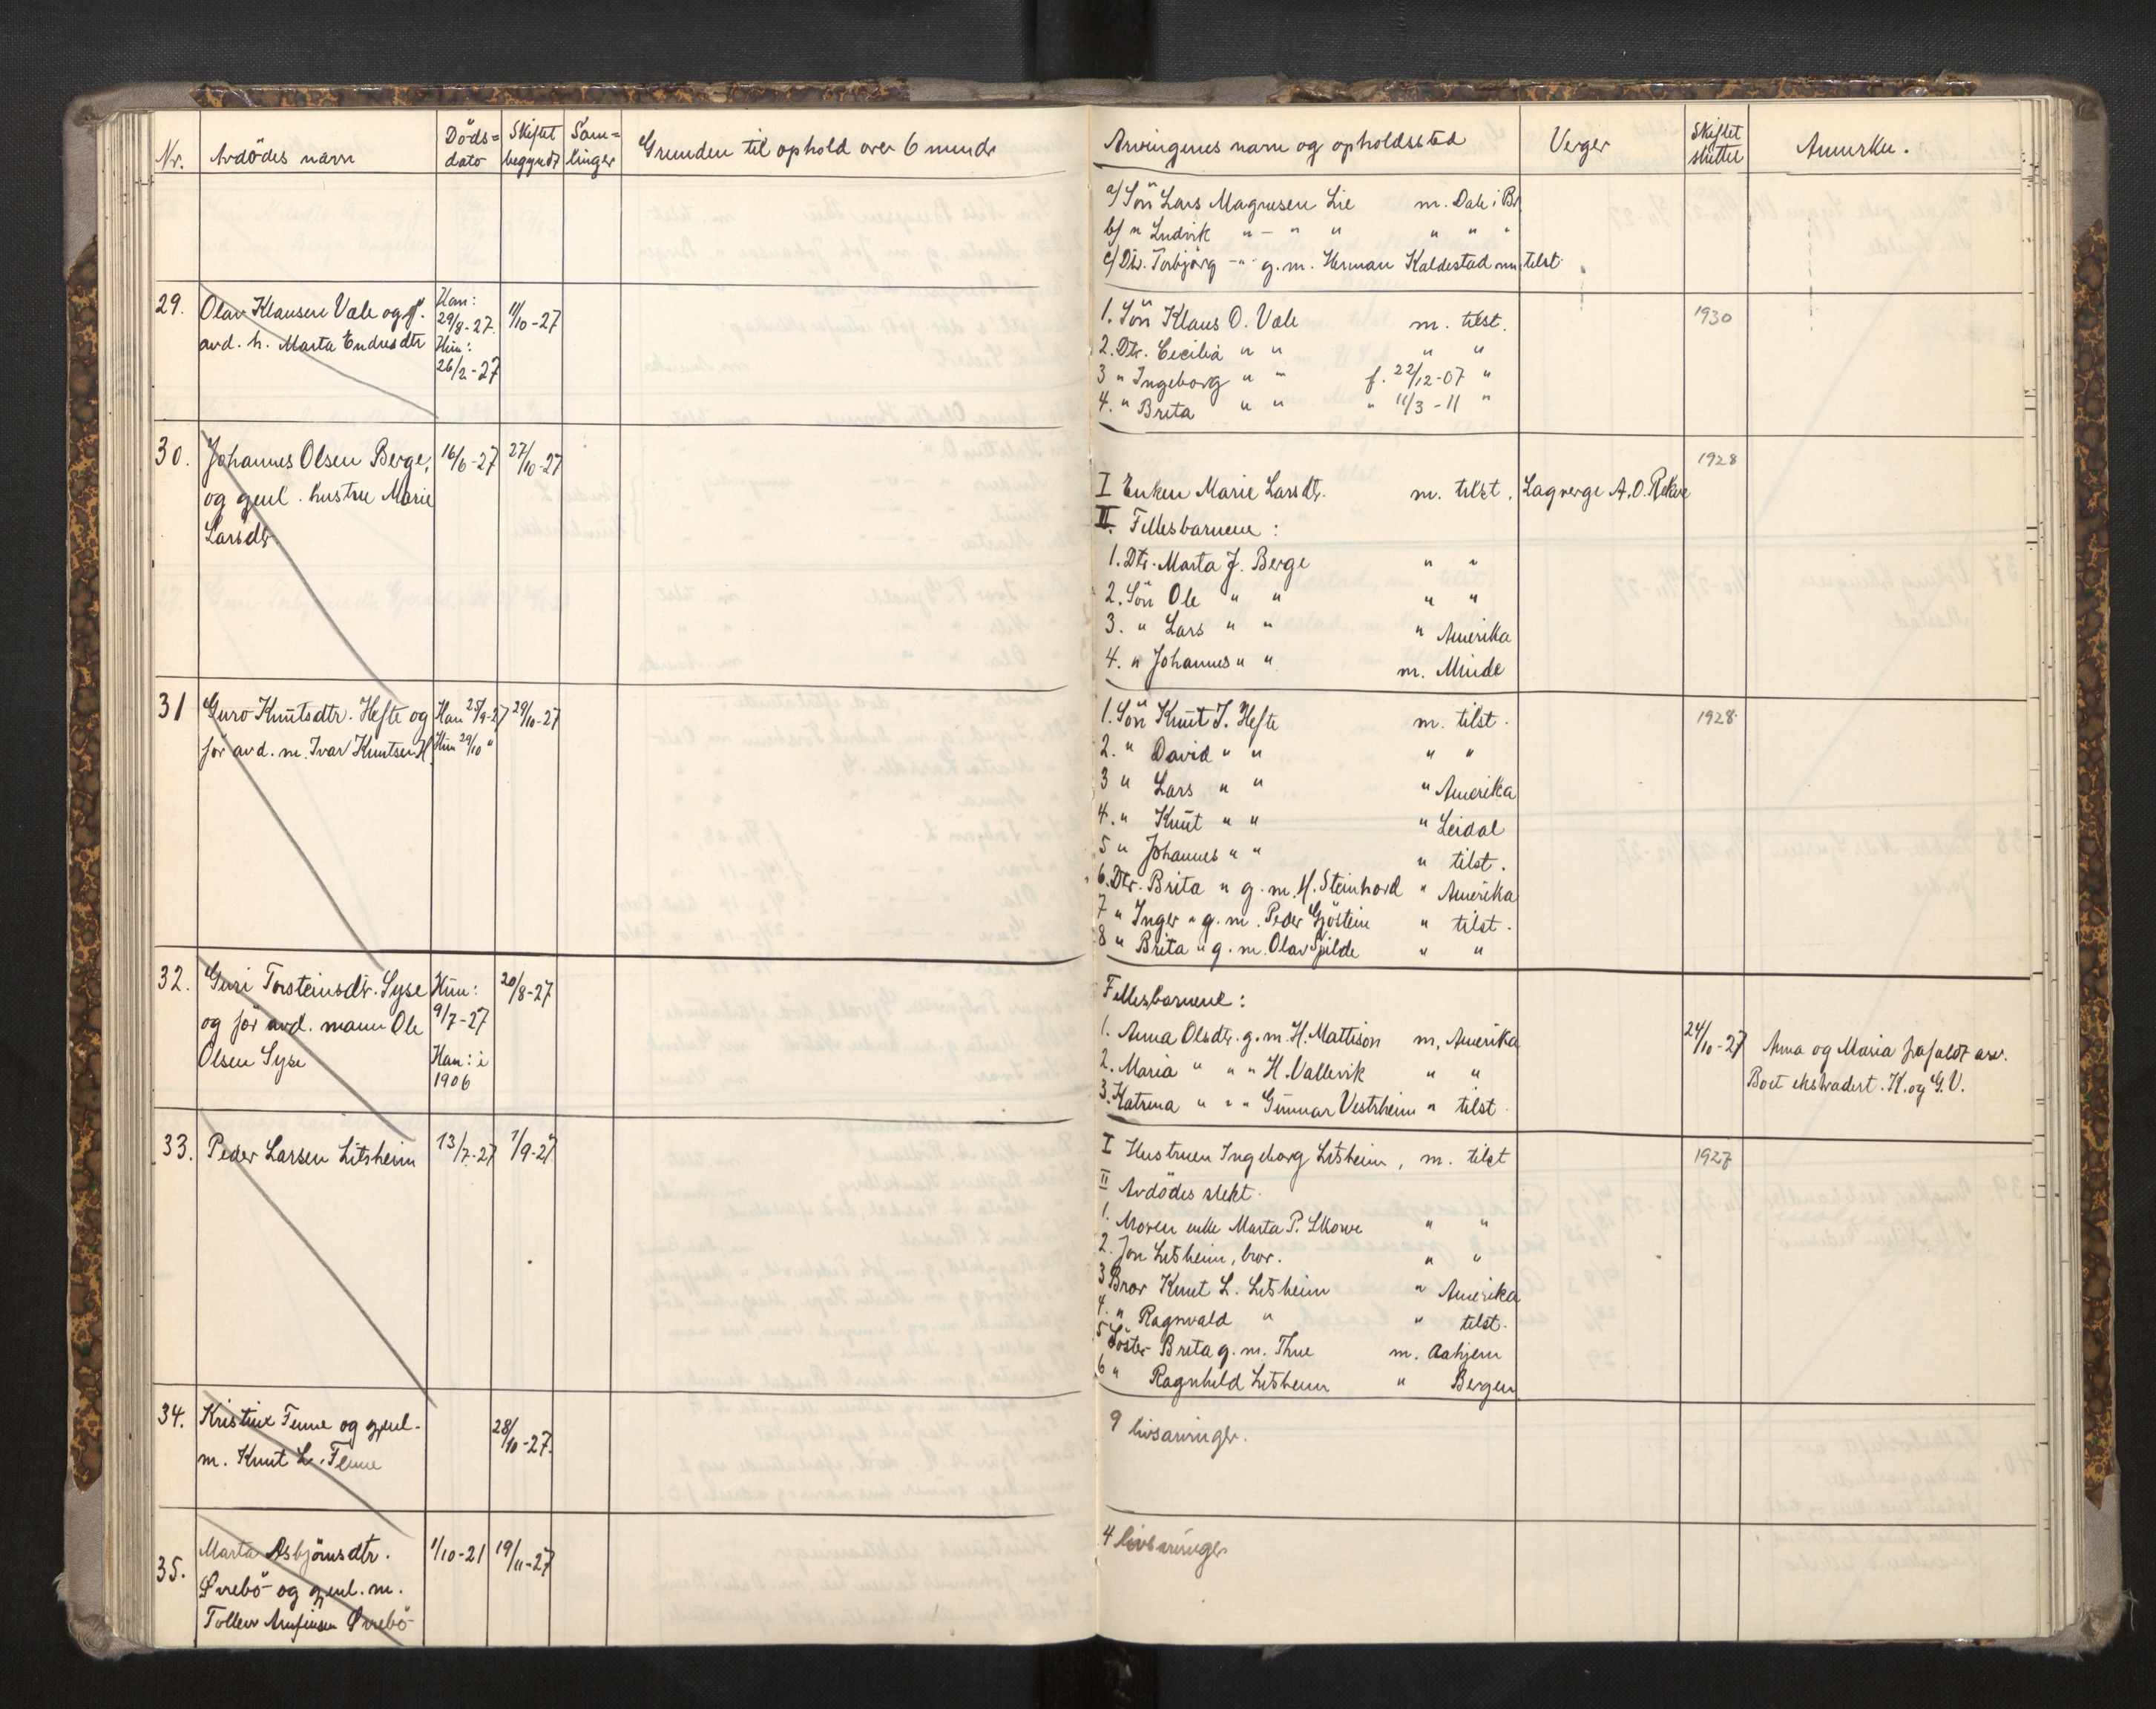 Nr. Avdödes navn Döds= dato Skiftet begyndt Sam= linger Grunden til ophold over 6 mndr
Arvingenes navn og opholdssted Verger Skiftet sluttet Anmerkn.
a/ Sön Lars Magnusen Lie m. Dale i Br.
b/ " Ludvik " – " " " " "
c/ Dtr. Torbjörg –"– g. m. Herman Kaldestad m. tilst
29. Olav Klausen Vale og f. Han: 29/8-27. 11/10-27
avd. h. Marta Endresdtr Hun: 26/2-27
1. Sön Klaus O. Vale m. tilst. 1930
2. Dtr. Cecilia " " " "
3 " Ingeborg " " f. 22/12-07 "
4. " Brita " " " 11/3-11 "
30. Johannes Olsen Berge, 16/6-27 27/10-27
og gjenl. hustru Marie
Larsdtr.
1928
I Enken Marie Larsdtr. m. tilst. Lagverge A. O. Rekve
II. Fellesbarnene :
1. Dtr. Marta J. Berge " "
2. Sön Ole " " " "
3. " Lars " " " Amerika
4. " Johannes " " m. Minde
31 Guro Knutsdtr. Hefte og Han 25/9-27 29/10-27
för avd. m. Ivar Knutsen H. Hun 29/10 "
1. Sön Knut I. Hefte m. tilst. 1928.
2. " David " " " "
3 " Lars " " " Amerika
4. " Knut " " " Leidal
5 " Johannes " " " tilst.
6. Dtr. Brita " g. m. H. Steinhord " Amerika
7 " Inger " g. m. Peder Gjöstein " tilst.
8 " Brita " g. m. Olav Spilde " "
32. Guri Torsteinsdtr. Syse Hun: 9/7-27 20/8-27
og för avd. mann Ole Han: i
Olsen Syse 1906
Fellesbarnene :
1. Anna Olsdtr. g. m. H. Mattison m. Amerika 24/10-27 Anna og Maria frafaldt arv.
2. Maria " " " H. Vallevik " " Boet ekstradert. K. og G. V.
3. Katrina " " " Gunnar Vestrheim " tilst.
33. Peder Larsen Litsheim 13/7-27 1/9-27
I Hustruen Ingeborg Litsheim, m. tilst 1927
II Avdödes slekt.
1. Moren enke Marta P. Skorve " "
2. Jon Litsheim, bror. " "
3 Bror Knut L. Litsheim " Amerika
4. " Ragnvald " " tilst.
5 Söster Brita g. m. Thue m. Aahjem
6 " Ragnhild Litsheim " Bergen
34. Kristine Fenne og gjenl. 28/10-27.
m. Knut L. Fenne
9 livsarvinger.
35. Marta Asbjörnsdtr. 1/10-21 19/11-27
Övrebö og gjenl. m.
Tollev Arnfinsen Övrebö
4 livsarvinger